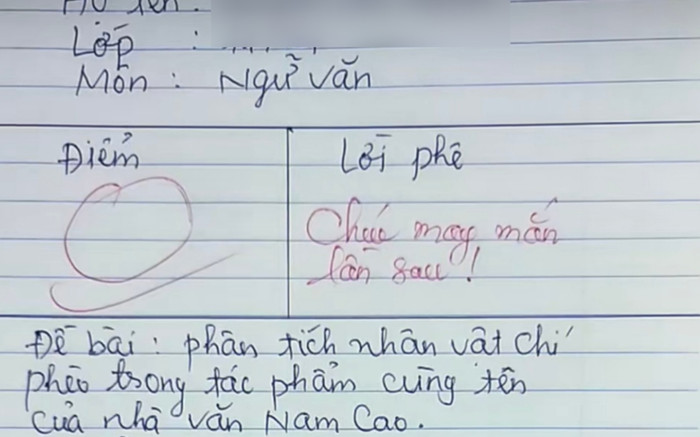 Họ tên :
Lớp :
Môn : Ngữ văn
Điểm
Lời phê
0
Chúc may mắn
lần sau!
Đề bài : phân tích nhân vật chí
phèo trong tác phẩm cùng tên
của nhà văn Nam Cao.